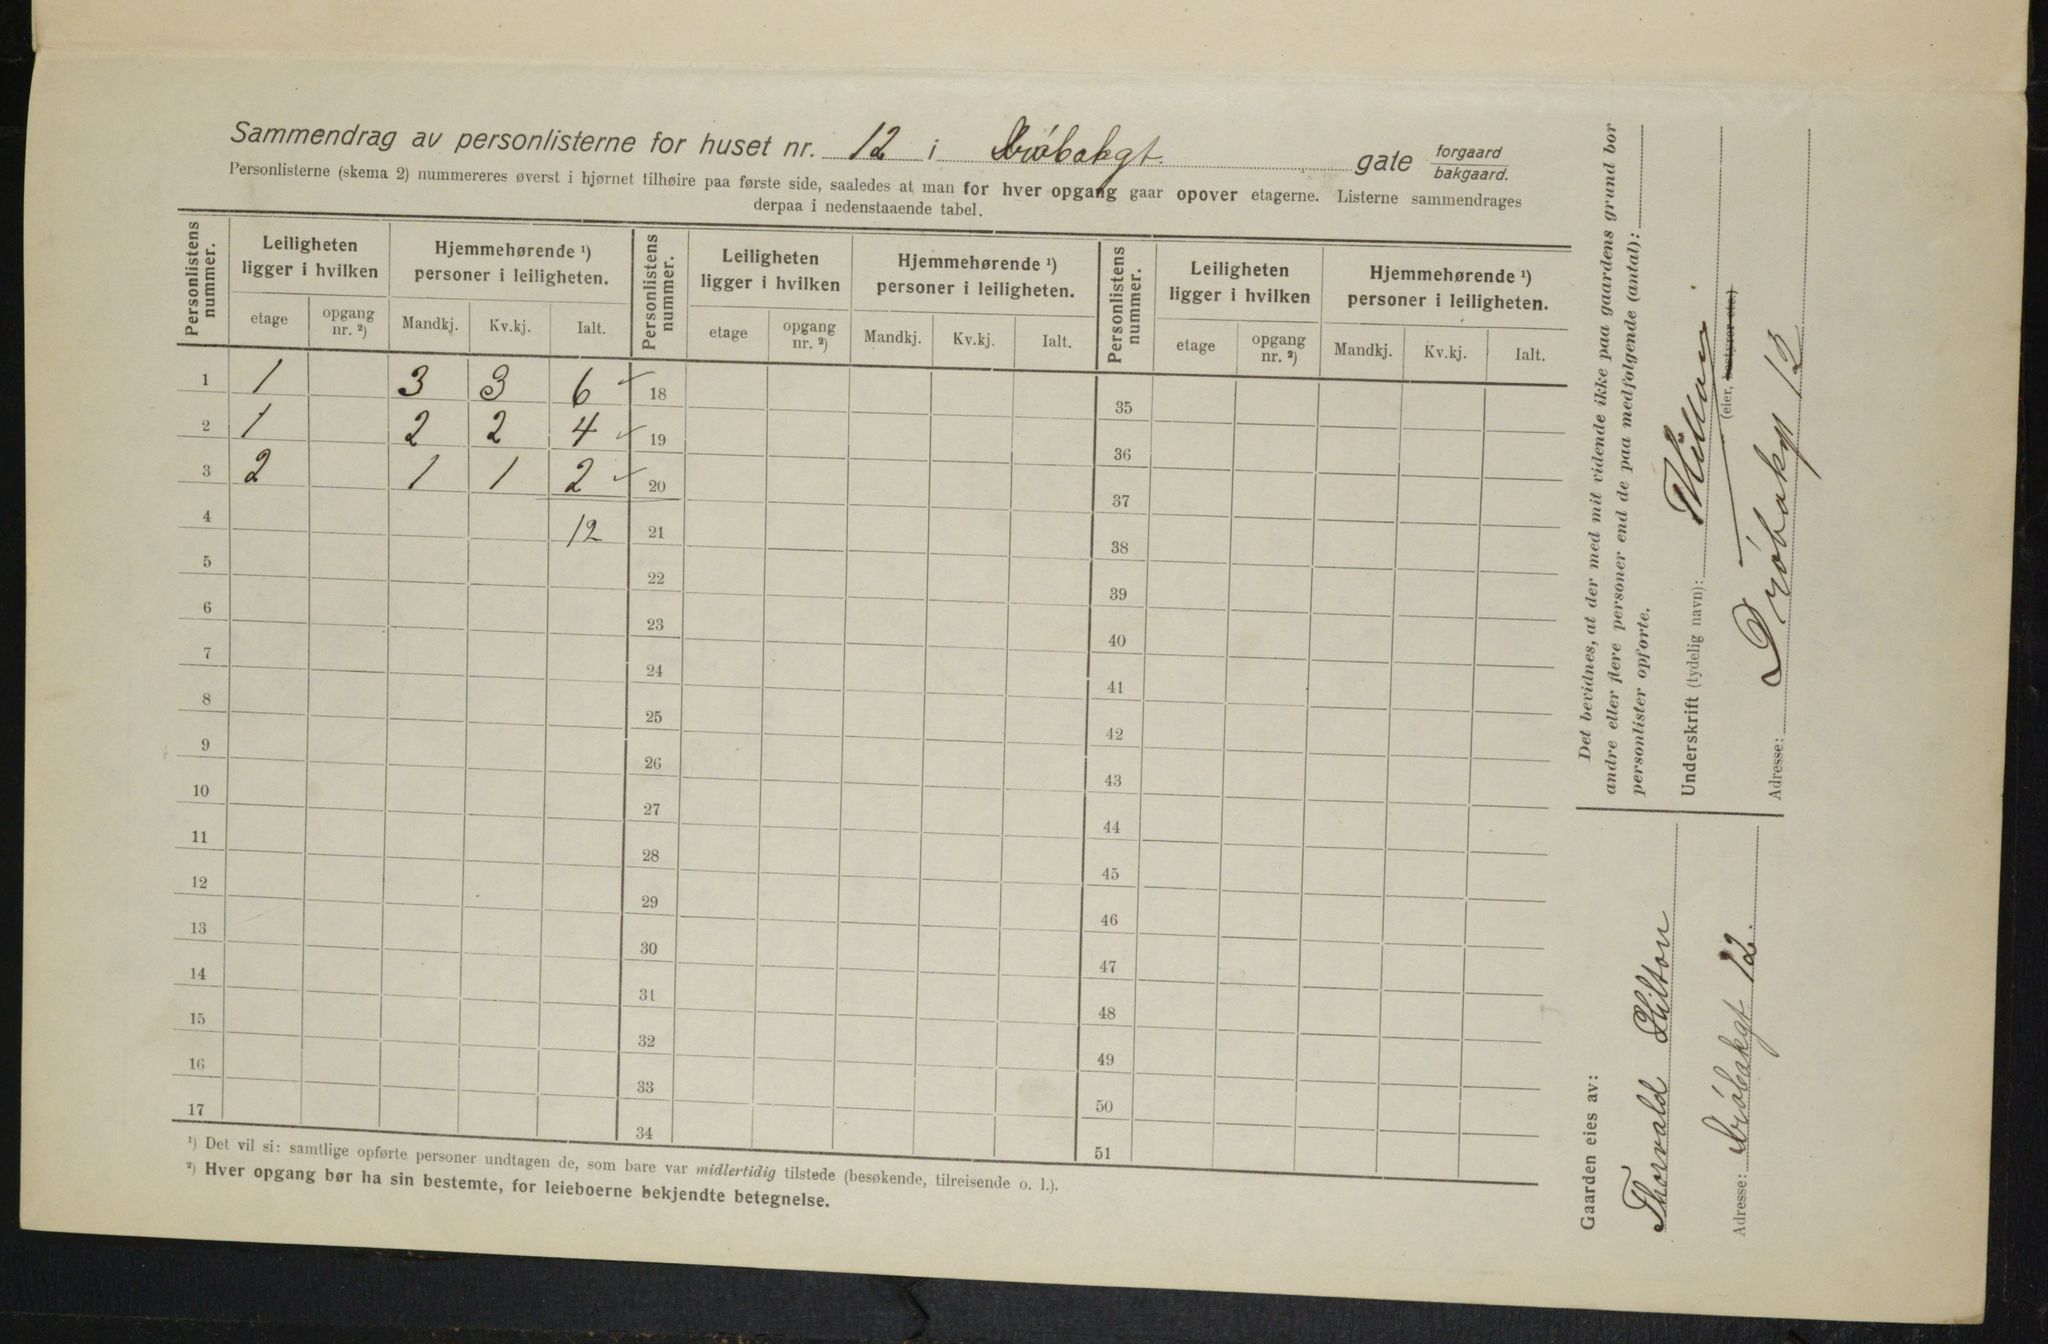 Sammendrag av personlisterne for huset nr. 12 i Drøbakgt. gate forgaard bakgaard.
Personlisterne (skema 2) nummereres øverst i hjørnet tilhøire paa første side, saaledes at man for hver opgang gaar opover etagerne. Listerne sammendrages
derpaa i nedenstaaende tabel.
Personlistens nummer. Leiligheten ligger i hvilken Hjemmehørende ¹) personer i leiligheten. Personlistens nummer. Leiligheten ligger i hvilken Hjemmehørende ¹) personer i leiligheten. Personlistens nummer. Leiligheten ligger i hvilken Hjemmehørende ¹) personer i leiligheten.
etage opgang nr. ²) Mandkj. Kv.kj. Ialt. etage opgang nr. ²) Mandkj. Kv.kj. Ialt. etage opgang nr. ²) Mandkj. Kv.kj. Ialt.
1 1 3 3 6 ✓ 18 35
2 1 2 2 4 ✓ 19 36
3 2 1 1 2 ✓ 20 37
4 12 21 38
5 22 39
6 23 40
7 24 41
8 25 42
9 26 43
10 27 44
11 28 45
12 29 46
13 30 47
14 31 48
15 32 49
16 33 50
17 34 51
¹) Det vil si: samtlige opførte personer undtagen de, som bare var midlertidig tilstede (besøkende, tilreisende o. l.).
²) Hver opgang bør ha sin bestemte, for leieboerne bekjendte betegnelse.
Det bevidnes, at der med mit vidende ikke paa gaardens grund bor
andre eller flere personer end de paa medfølgende (antal):
personlister opførte.
Underskrift (tydelig navn):
(eier, bestyrer etc.)
Adresse: Drøbakgt 12
Gaarden eies av:
Thorvald Hilton
Adresse: Drøbakgt 12.